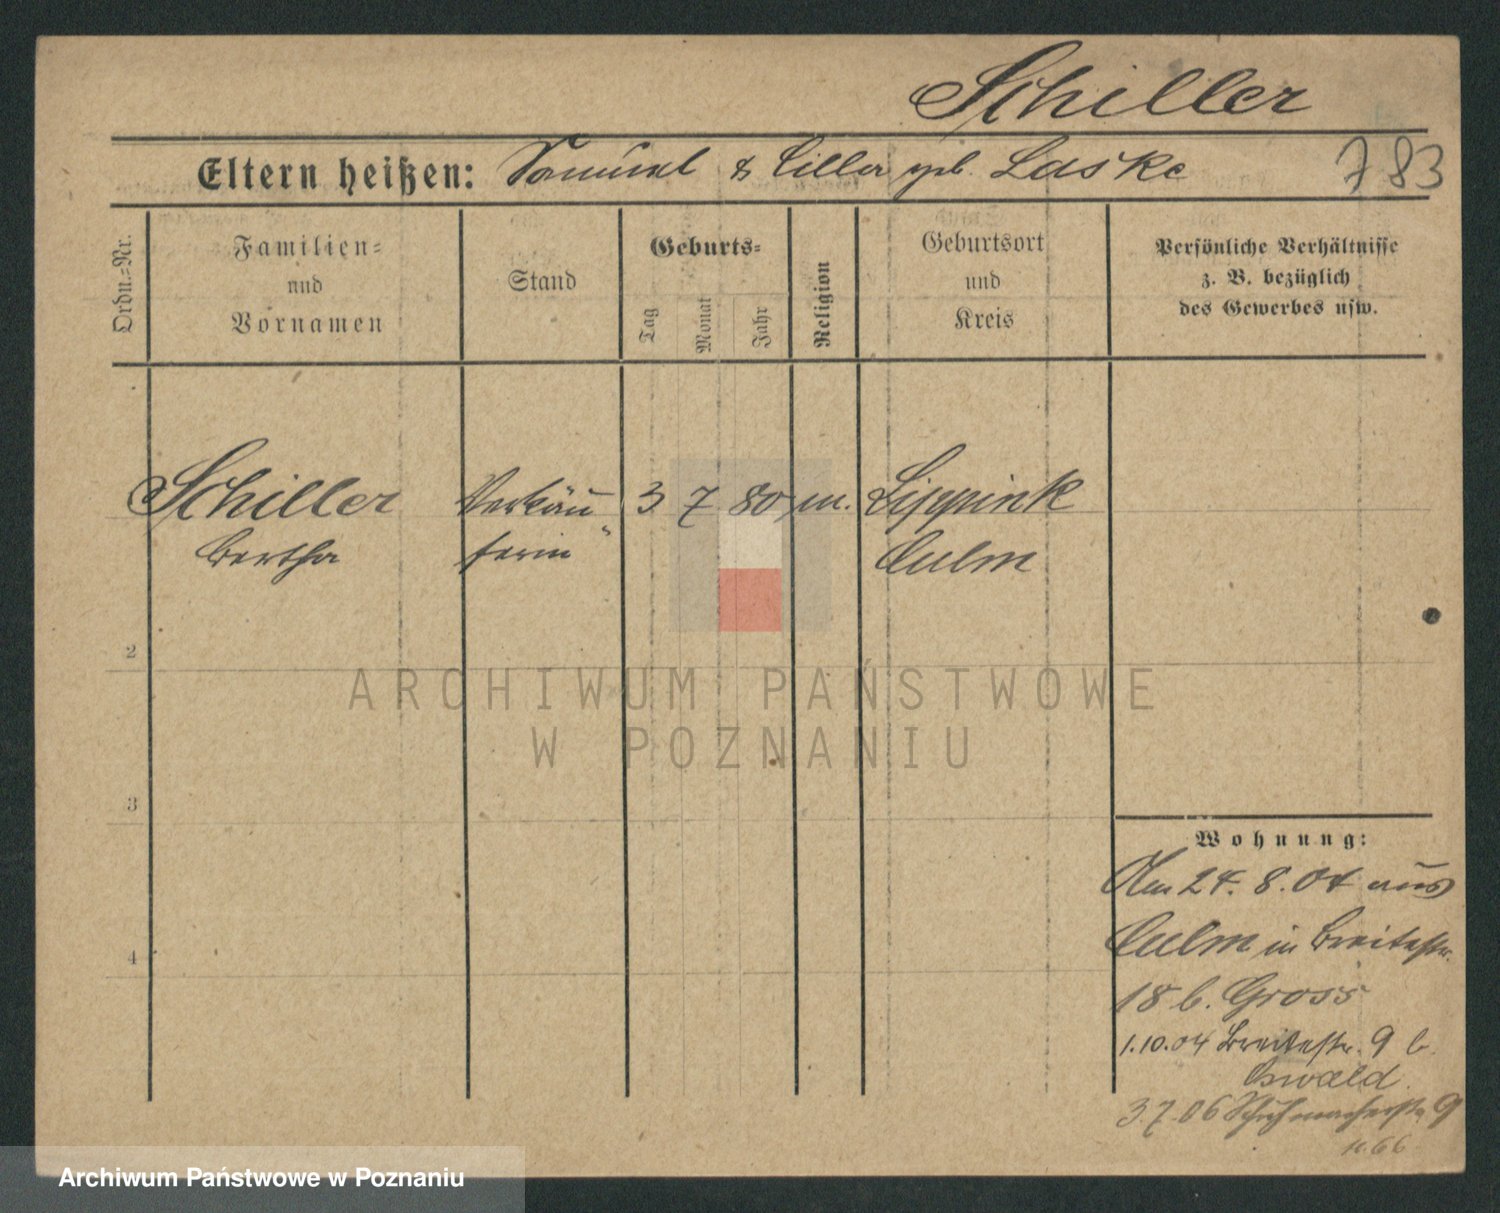 Schiller
Eltern heißen: Samuel & Ciller geb. Laske 783
Ordn.=Nr.
Familien=
und
Vornamen
Stand
Geburts=
Tag
Monat
Jahr
Religion
Geburtsort
und
Kreis
Persönliche Verhältnisse
z. B. bezüglich
des Gewerbes usw.
Schiller Verkäu 3 7 80 m. Lippink
Bertha ferin Culm
2
3
4
ARCHIWUM PAŃSTWOWE
W POZNANIU
Wohnung:
Am 24. 8. 04 aus
Culm in Breitestr.
18 b. Gross
1.10.04 Breitestr. 9 b.
Oswald.
3 7. 06 Schuhmacherstr. 9
Archiwum Państwowe w Poznaniu